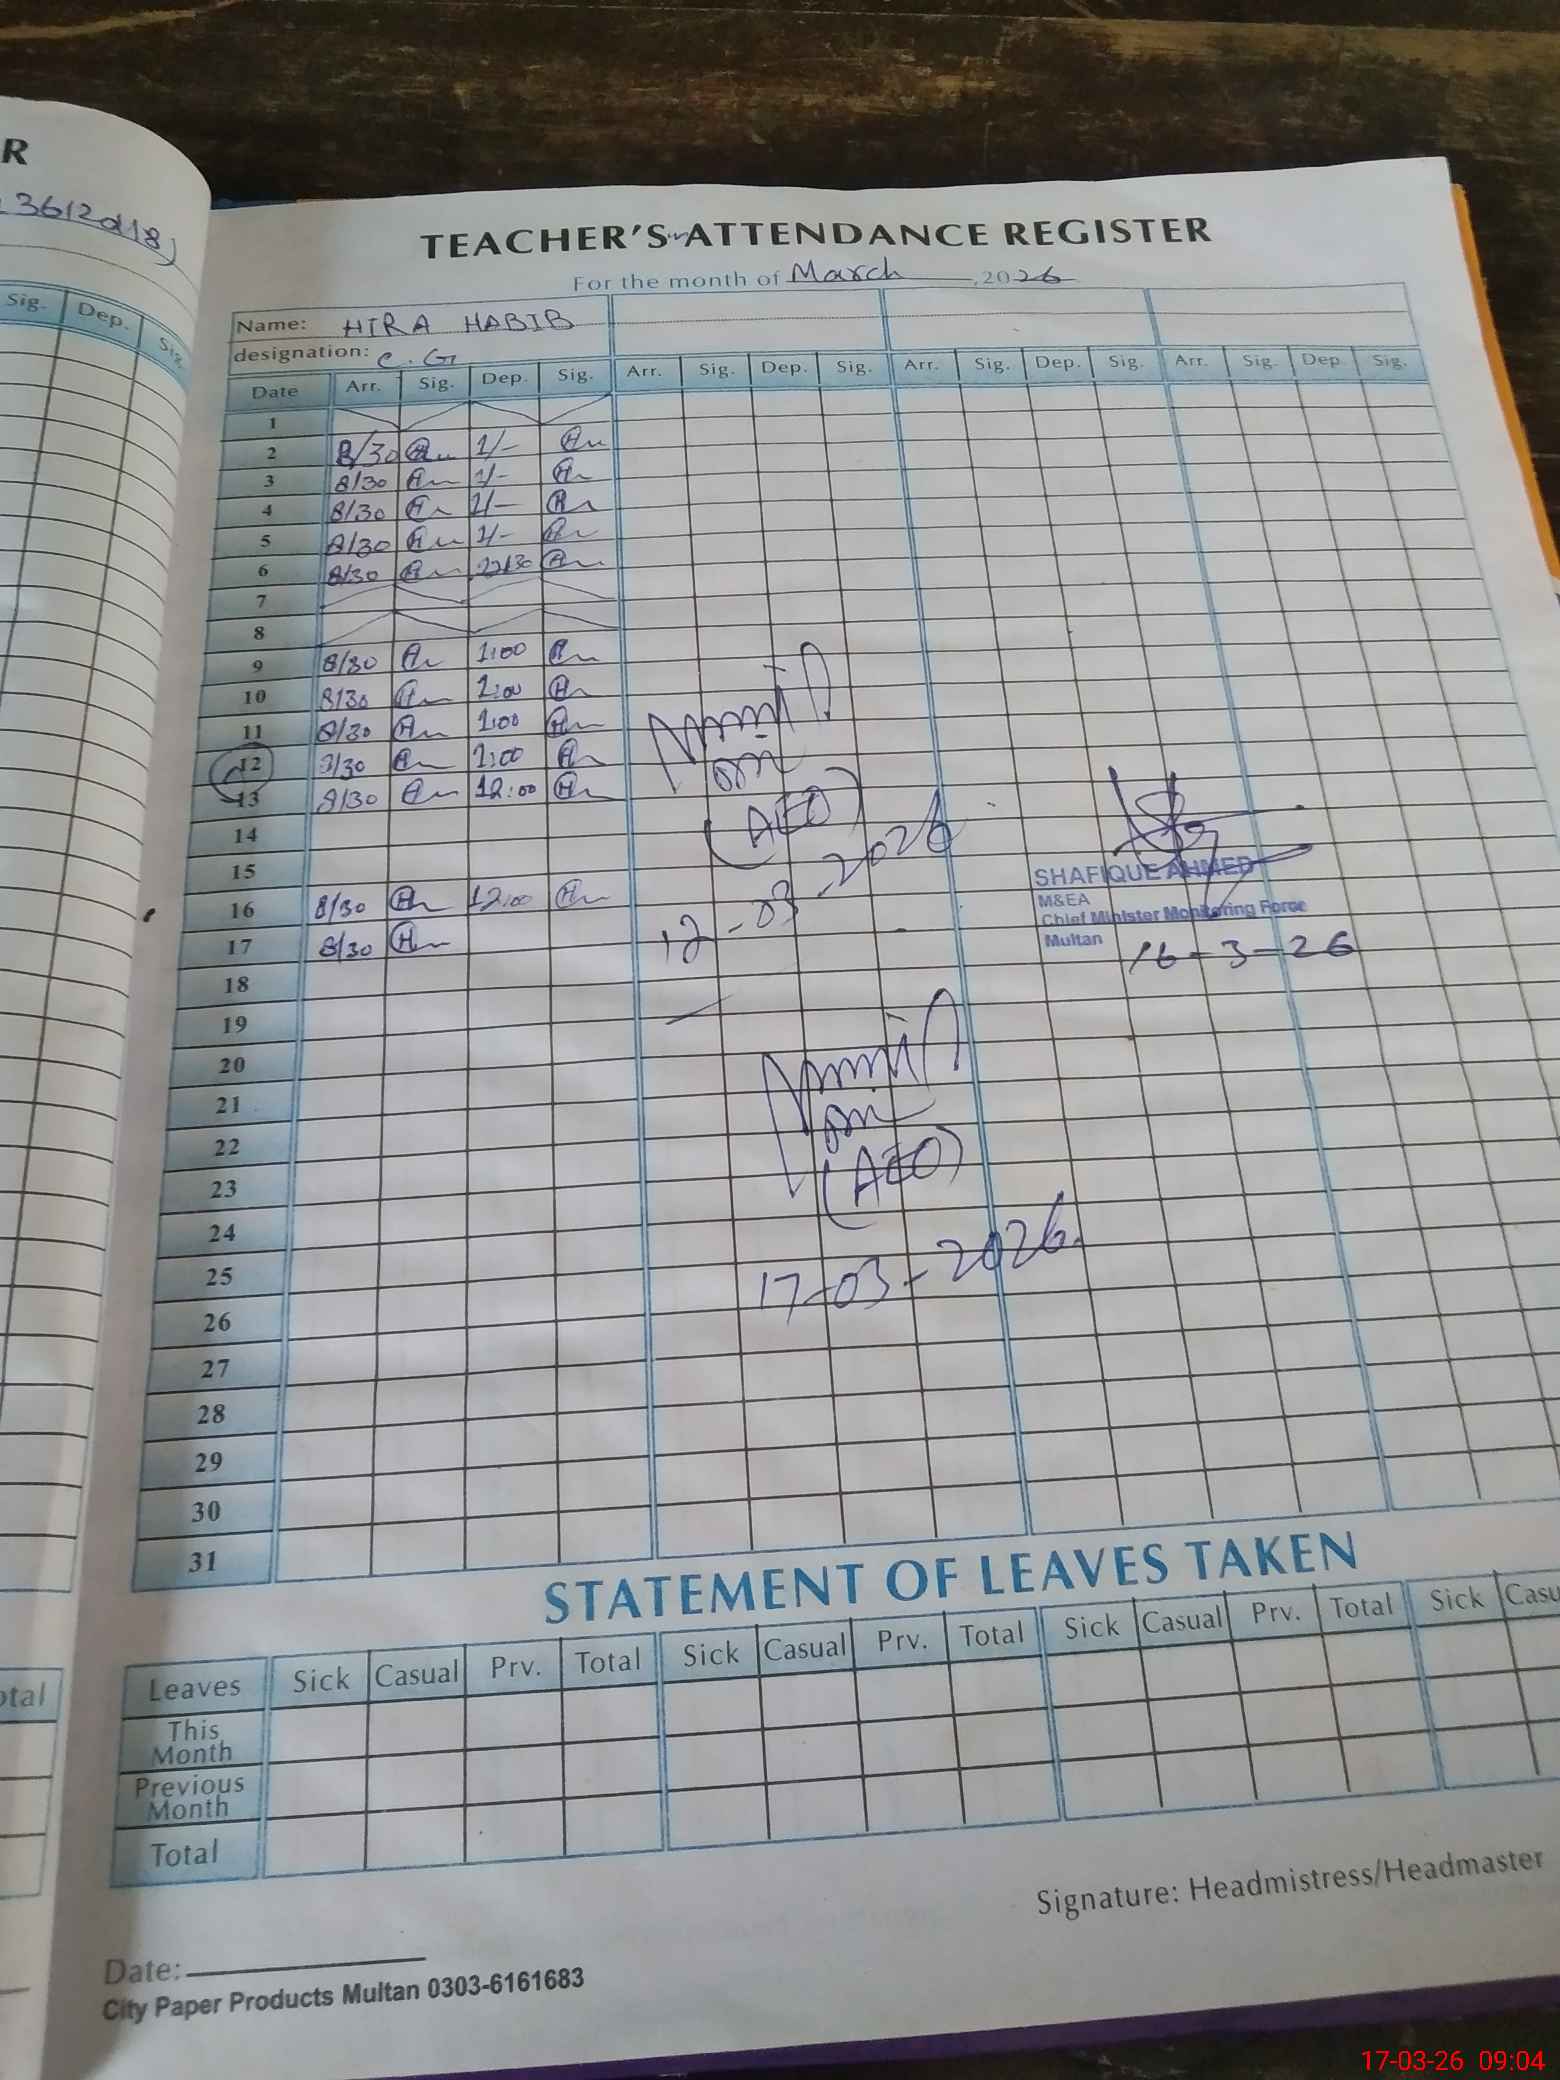 R
3612d18)
Sig. Dep. Sig.
TEACHER'S ATTENDANCE REGISTER
For the month of March, 2026
Name: HIRA HABIB
designation: C.G
Date Arr. Sig. Dep. Sig. Arr. Sig. Dep. Sig. Arr. Sig. Dep. Sig. Arr. Sig. Dep. Sig.
1
2 8/30 1/-
3 8/30 1/-
4 8/30 1/-
5 8/30 1/-
6 8/30 12/30
7
8
9 8/30 1:00
10 8/30 1:00
11 8/30 1:00
12 8/30 1:00
13 8/30 12:00
(AEO)
14
12-03-2026
15
SHAFIQUE AHMED
M&EA
16 8/30 12:00
Chief Minister Monitoring Force
17 8/30
Multan
16-3-26
18
19
20
21
22
(AEO)
23
24
17-03-2026
25
26
27
28
29
30
31
STATEMENT OF LEAVES TAKEN
Leaves Sick Casual Prv. Total Sick Casual Prv. Total Sick Casual Prv. Total Sick Casu
otal
This Month
Previous Month
Total
Signature: Headmistress/Headmaster
Date:
City Paper Products Multan 0303-6161683
17-03-26 09:04